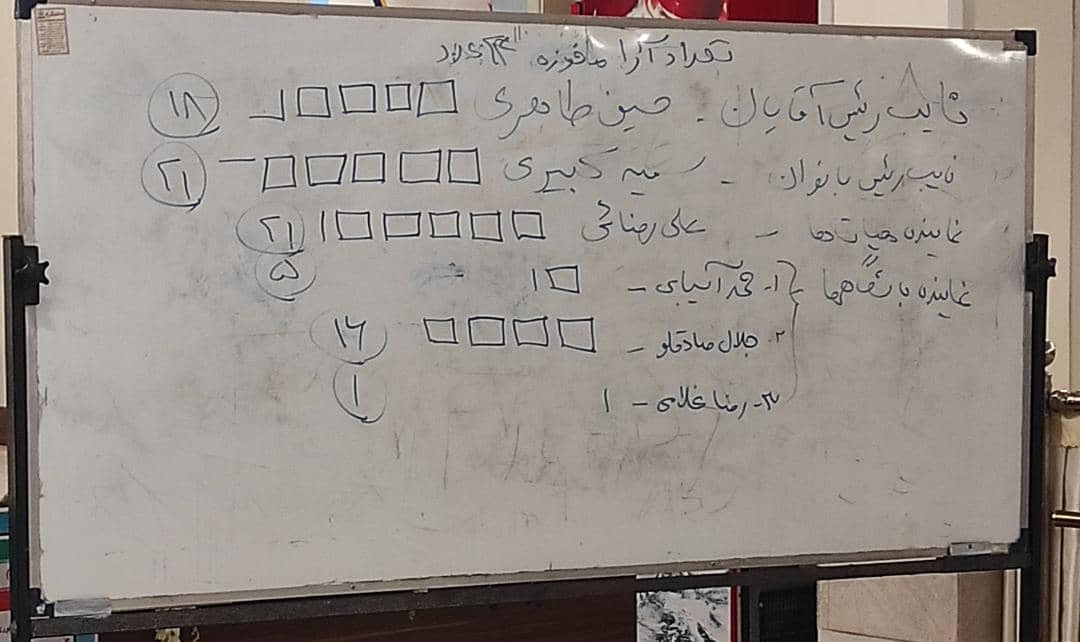 تعداد آرا ماخوذه
نایب رئیس آقایان - حسین طاهری ۱۸
نایب رئیس بانوان - سمیه کبیری ۲۱
نماینده هیات ها - علی رضائی ۲۱
نماینده باشگاهها ۱- آسیابی - ۵
۲- جلال صادقلو - ۱۶
۳- رضا غلامی - ۱ ۱